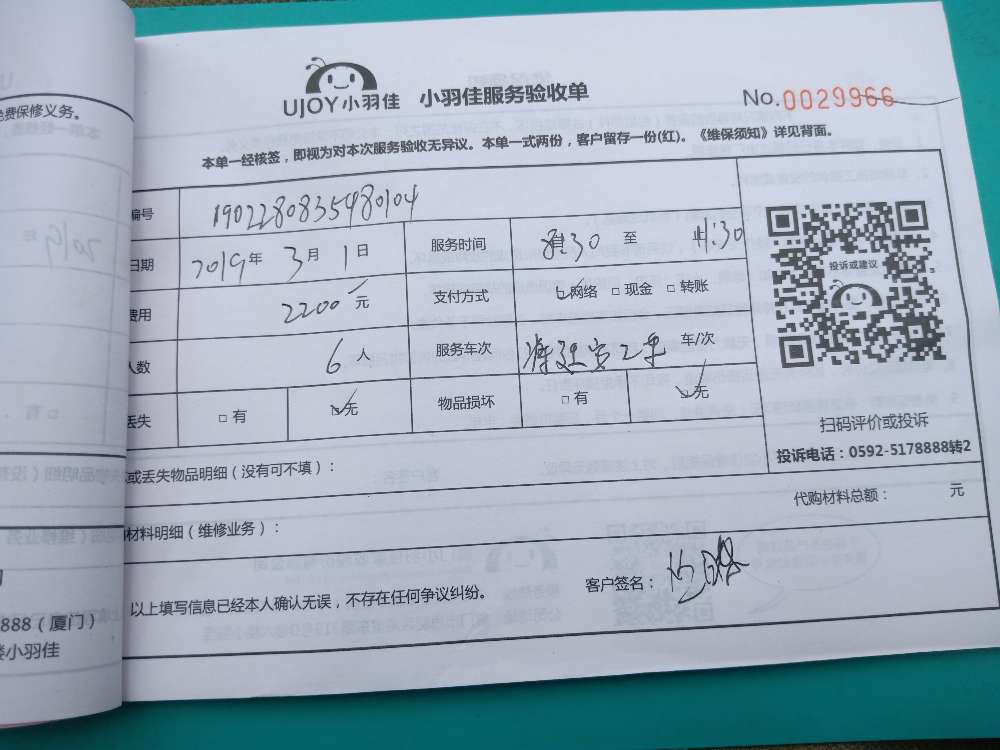 免费保修义务。
UJOY小羽佳 小羽佳服务验收单
No.0029966
本单一经核签，即视为对本次服务验收无异议。本单一式两份，客户留存一份(红)。《维保须知》详见背面。
编号 1902280835480104
日期 2019年 3月 1日 服务时间 8:30 至 11:30
费用 2200 元 支付方式 □网络 □现金 □转账
人数 6 人 服务车次 车/次
丢失 □有 □无 物品损坏 □有 □无
投诉或建议
扫码评价或投诉
投诉电话：0592-5178888转2
或丢失物品明细（没有可不填）：
代购材料总额： 元
材料明细（维修业务）：
以上填写信息已经本人确认无误，不存在任何争议纠纷。
客户签名：
888（厦门）
小羽佳